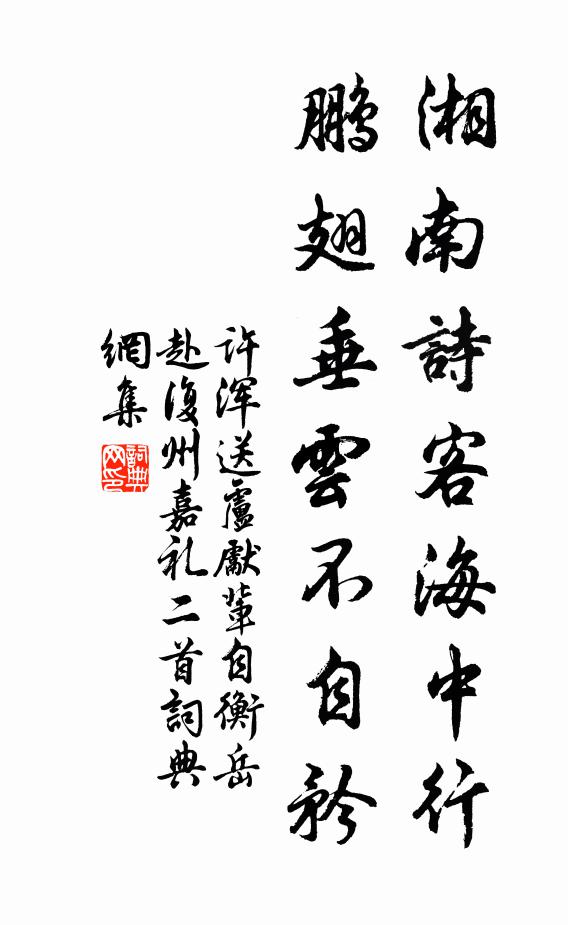 湘南詩客海中行
鵬翅垂雲不自矜
許渾送盧獻輩自衡岳
赴復州嘉礼二首詞典
網集
詞典
网印